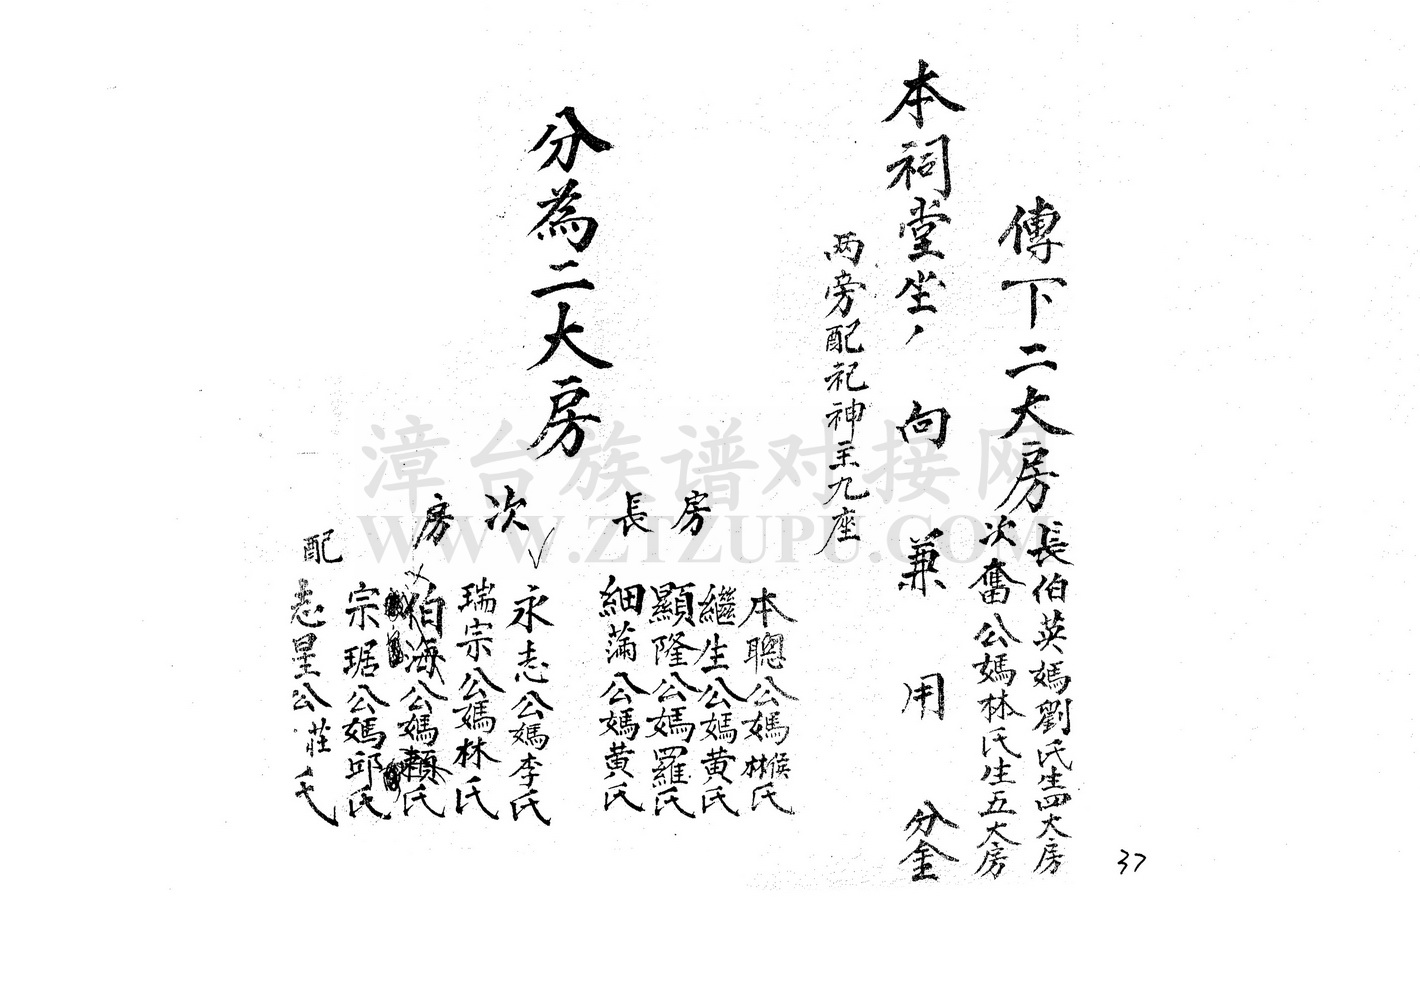 傳下二大房
長伯英媽劉氏生四大房
次奮公媽林氏生五大房
本祠堂坐丶向兼用分金
两旁配祀神主九座
分為二大房
長房
本聰公媽林侯氏
繼生公媽黃氏
顯隆公媽羅氏
細蒲公媽黃氏
次房
永志公媽李氏
瑞宗公媽林氏
伯海公媽賴氏
宗琚公媽邱氏
配
志星公莊氏
37
漳台族谱对接网
WWW.ZTZUPU.COM